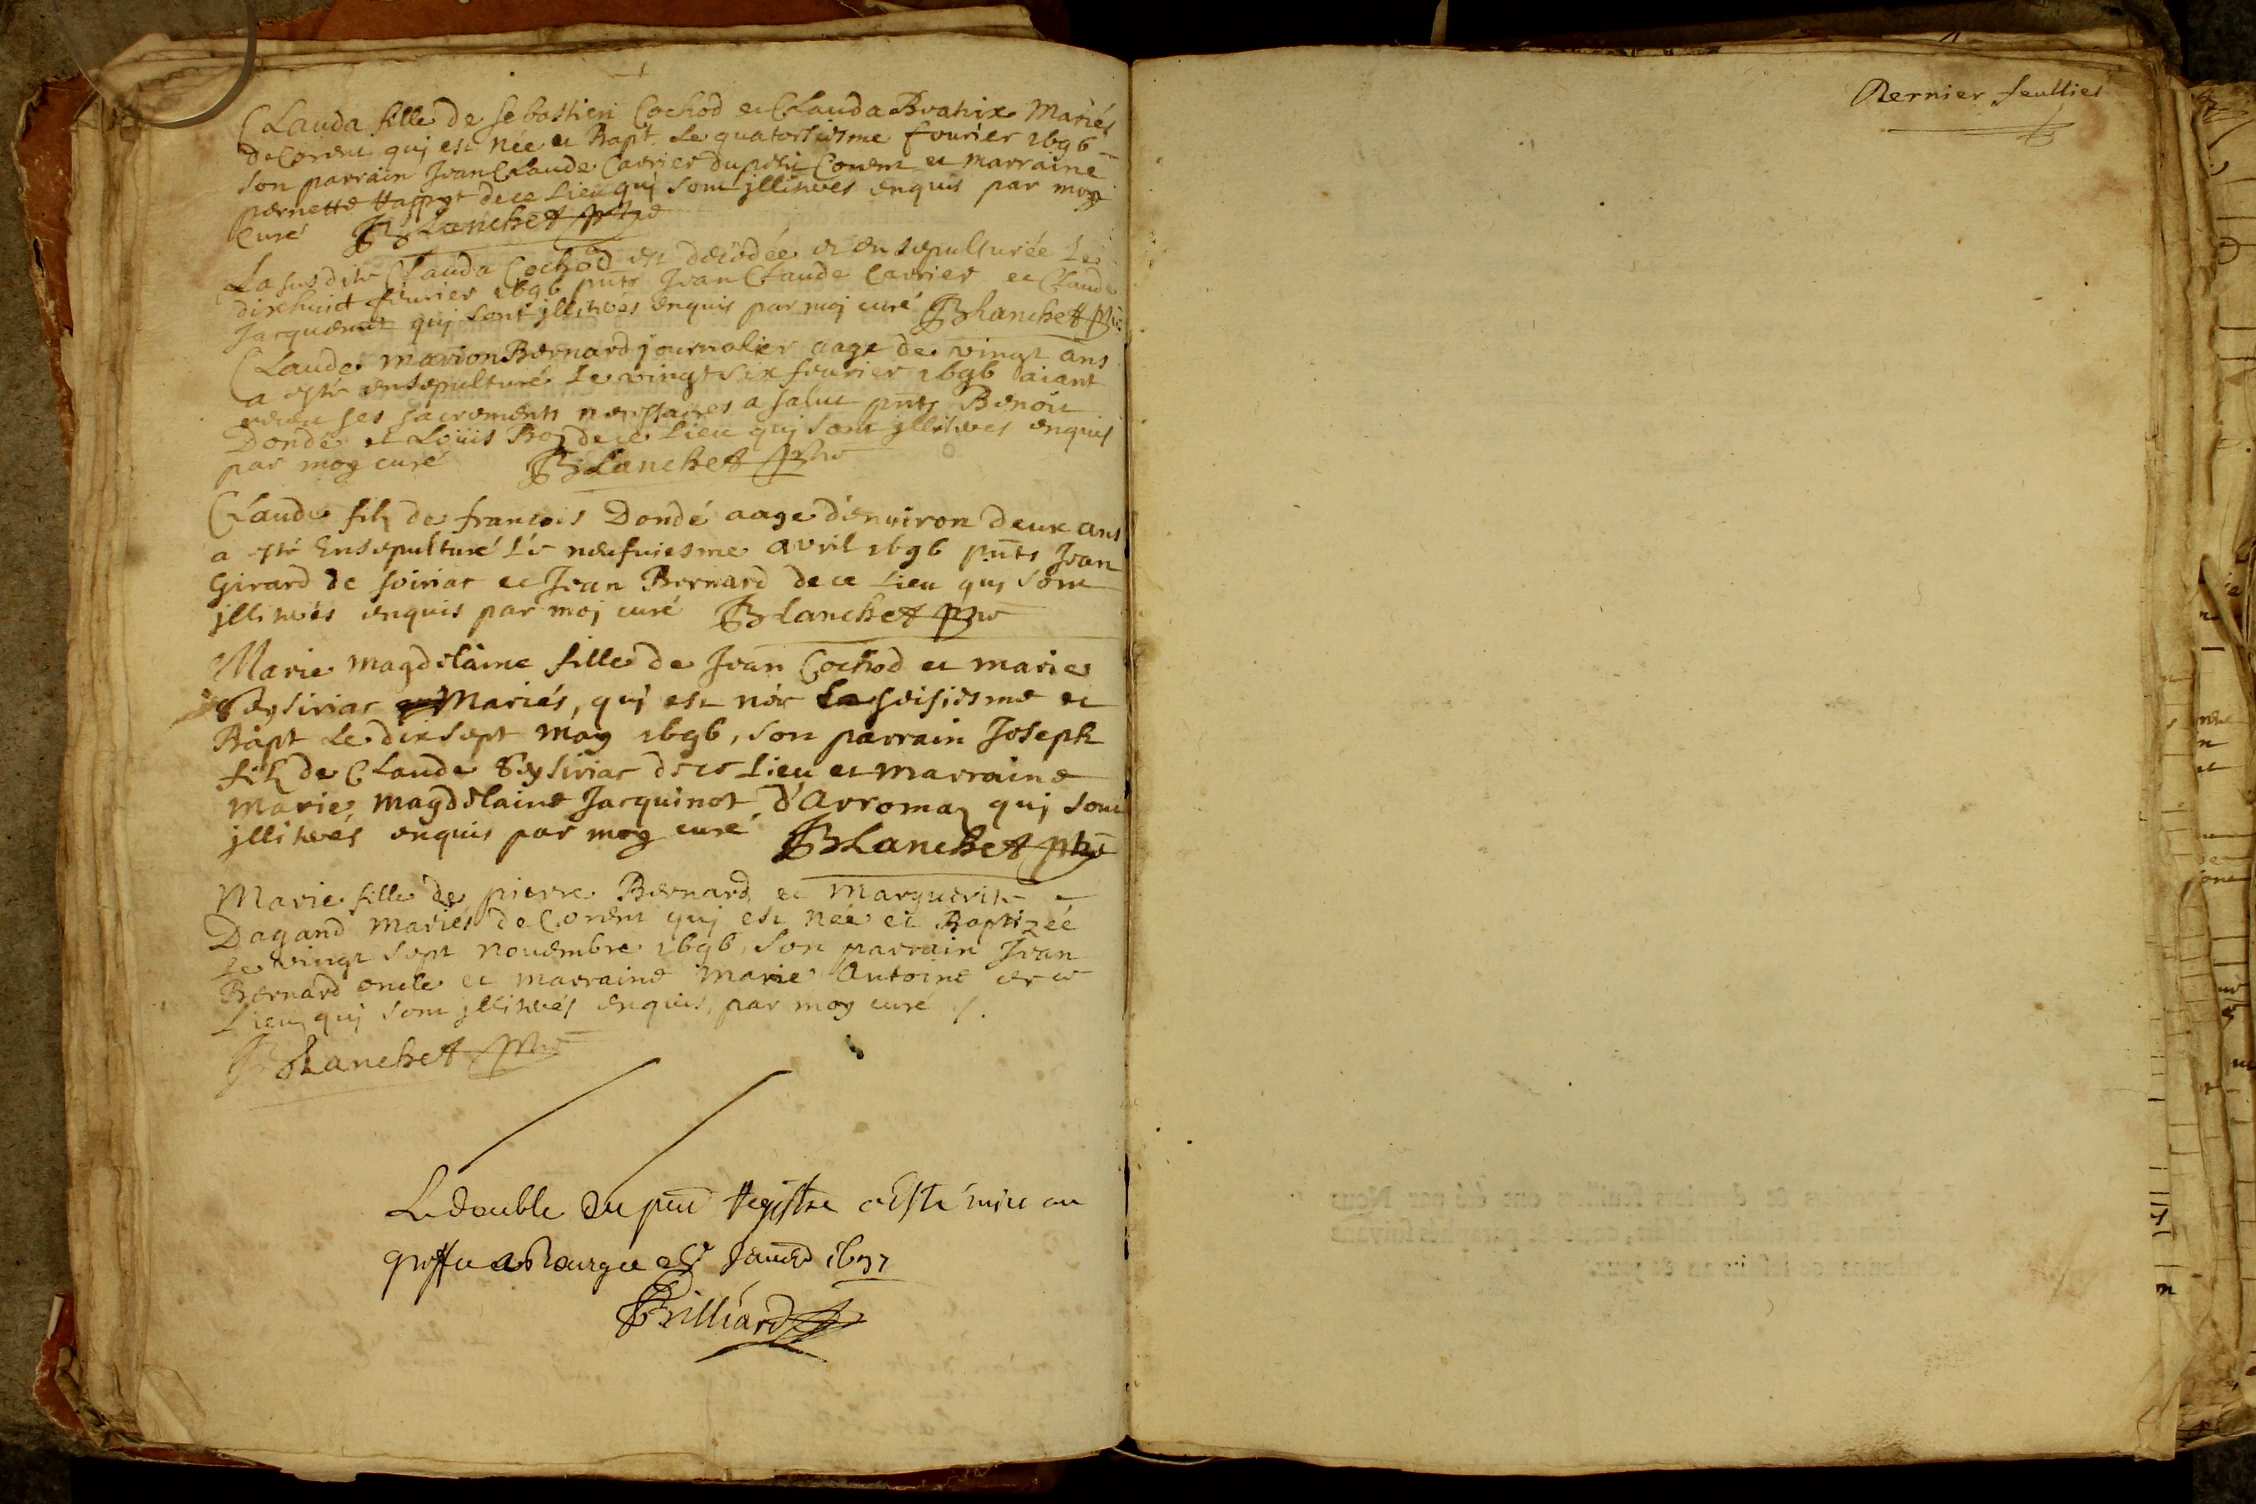 Clauda fille de sebastien Cochod et Clauda Brahix Mariés
de Corent quj est née et Bapt. Le quatorsiesme feurier 1696
son parrain Jean Claude Carrier du petit Corent et marraine
pernette Happyt de ce Lieu quj sont jllitrés enquis par moy
Curé BLanchet ptre
La susdite Clauda Cochod est décédée et ensepulturée Le
dixhuict feurier 1696 pnts Jean Claude Carrier et Claude
Jacquemet quj sont jllitrés enquis par moj curé BLanchet ptre
Claude marion Bernard journalier aagé de vingt ans
a esté ensepulturé Le vingt six feurier 1696 aiant
receu ses sacrements necessaires a salut pnts Benoit
Dondé et Loüis Roy de ce Lieu quj sont jllitrés enquis
par moy curé BLanchet ptre
Claude filz de francois Dondé aagé d'enuiron deux ans
a esté Ensepulturé Le neufuiesme avril 1696 pnts Jean
Girard de soiriac et Jean Bernard de ce Lieu quj sont
jllitrés enquis par moj curé BLanchet ptre
Marie magdelaine fille de Jean Cochod et marie
Seysiriac Mariés, quj est née Le seisiesme et
Bapt Le dixsept may 1696, son parrain Joseph
filz de Claude Seysiriac de ce Lieu et marraine
marie magdelaine Jacquinot d'Arromaz quj sont
jllitrés enquis par moy curé BLanchet ptre
Marie fille de pierre Bernard et Marguerite
Dagand mariés de Corent quj est née et Baptizée
Le vingt sept nouembre 1696, son parrain Jean
Bernard oncle et marraine Marie Antoine de ce
Lieu, quj sont jllitrés enquis, par moy curé /.
BLanchet ptre
Le double du pnt Registre a Esté mis au
greffe a Bourg ce Januier 1697
Brilliard
Dernier feuillet